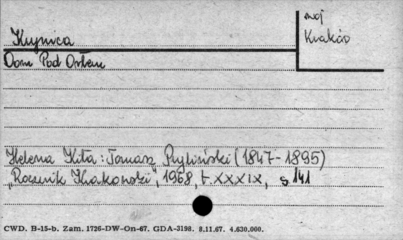 Kuźnica
woj
Kraków
Dom Pod Orłem
Helena Kita: Tomasz Pryliński (1847-1895)
"Rocznik Krakowski", 1968, t. XXXIX, s 141
CWD. B-15-b. Zam. 1726-DW-On-67. GDA-3198. 8.11.67. 4.630.000.